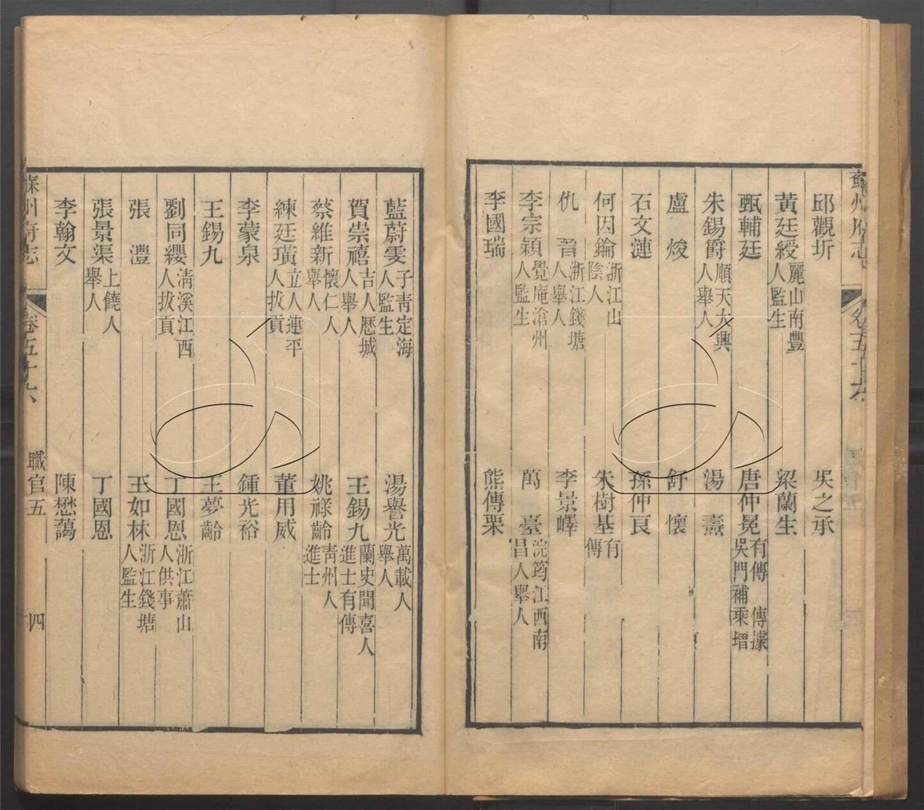 蘇州府志
卷五十六
邱觀圻 吳之承
黃廷綬 麗山南豐人監生 梁蘭生
甄輔廷 唐仲冕 有傳 傳據吳門補乘增
朱錫爵 順天大興人舉人 湯燾
盧焌 舒懷
石文漣 孫仲良
何因錀 浙江山陰人 朱樹基 有傳
仇晉 浙江錢塘人舉人 李景嶧
李宗穎 覺庵滄州人監生 萬臺 浣筠江西南昌人舉人
李國瑞 熊傳栗
藍蔚雯 子靑定海人監生 湯譽光 萬載人舉人
賀崇禧 吉人厯城人舉人 王錫九 蘭史聞喜人進士有傳
蔡維新 懷仁人舉人 姚祿齡 靑州人進士
練廷璜 立人連平人拔貢 董用威
李蒙泉 鍾光裕
王錫九 王夢齡
劉同纓 淸溪江西人拔貢 丁國恩 浙江蕭山人供事
張澧 王如林 浙江錢塘人監生
張景渠 上饒人舉人 丁國恩
李翰文 陳懋藹
蘇州府志 卷五十六 職官五 四